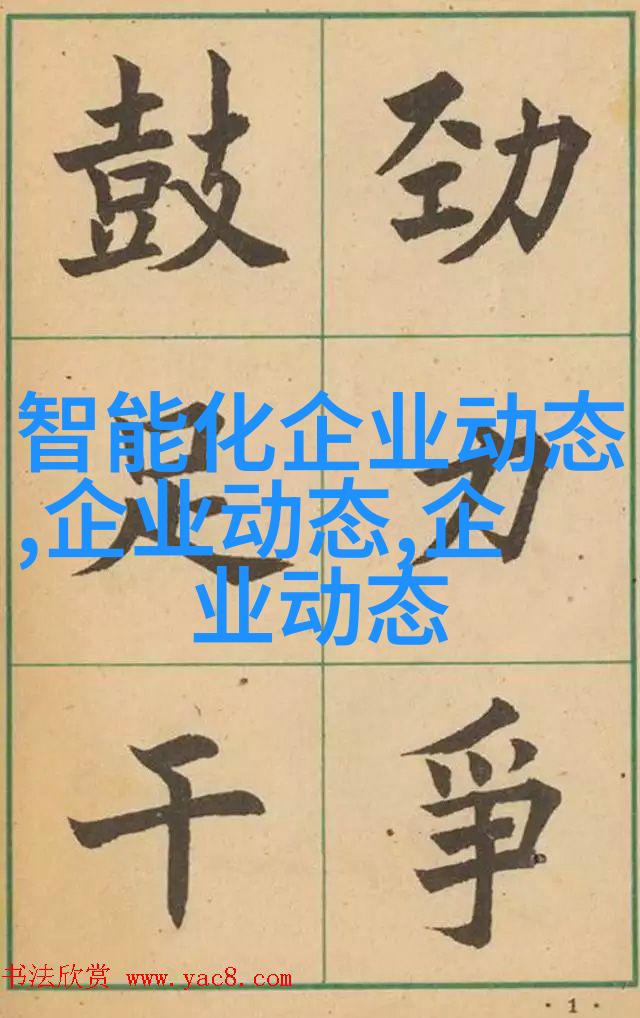 鼓足干
劲力爭
智能化企业动态
,企业动态,企
业动态
书法欣赏 www.yac8.com
·1·